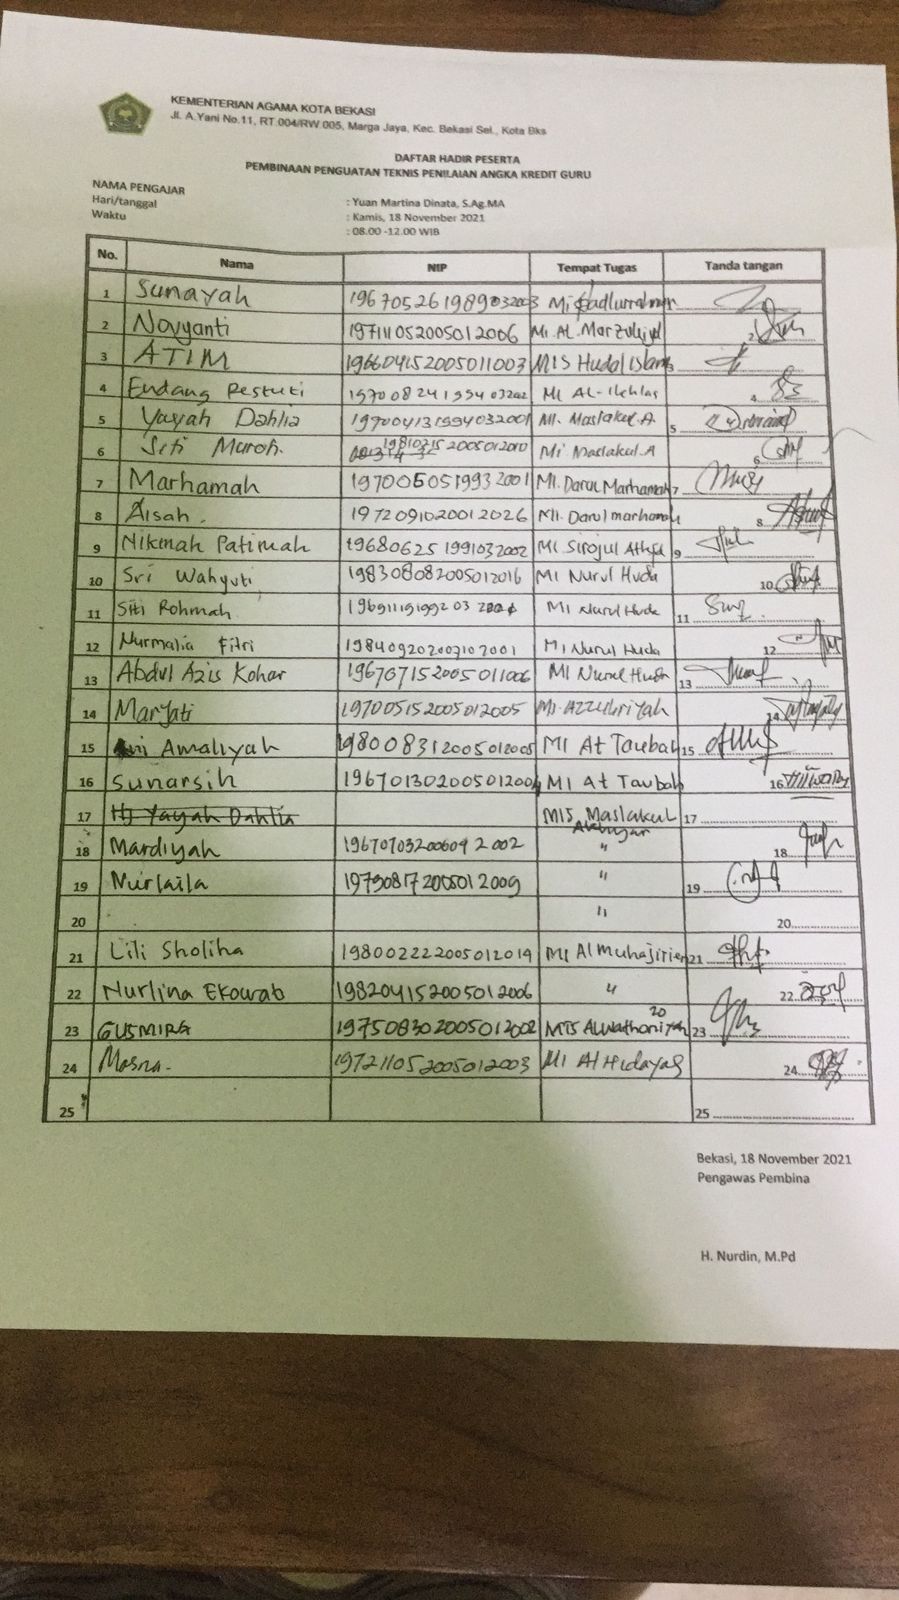 KEMENTERIAN AGAMA KOTA BEKASI
Jl. A.Yani No.11, RT.004/RW.005, Marga Jaya, Kec. Bekasi Sel., Kota Bks
DAFTAR HADIR PESERTA
PEMBINAAN PENGUATAN TEKNIS PENILAIAN ANGKA KREDIT GURU
NAMA PENGAJAR : Yuan Martina Dinata, S.Ag.MA
Hari/tanggal : Kamis, 18 November 2021
Waktu : 08.00 -12.00 WIB
No. Nama NIP Tempat Tugas Tanda tangan
1 Sunayah Mi
2 Novyanti 197111052005012006 MI. AL. Marzuqiyah 2
3 ATIM 196604152005011003 MIS Hudal Islam 3
4 Endang Restuti MI AL-Ikhlas 4
5 Yayah Dahlia 197004131994032001 MI. Maslakul.A 5
6 Siti Muroh. 198107152005012010 Mi Maslakul.A 6
7 Marhamah 1970050519932001 MI. Darul Marhamah 7
8 Aisah. 197209102001 2026 MI. Darul marhamah 8
9 Nikmah Patimah 19680625 1991032002 MI Sirojul 9
10 Sri Wahyuti 198308082005012016 MI Nurul Huda 10
11 Siti Rohmah MI Nurul Huda 11
12 Nurmalia Fitri 198409202007102001 MI Nurul Huda 12
13 Abdul Azis Kohar 196707152005011006 MI Nurul Huda 13
14 Maryati 197005152005012005 MI. Azzuhriyah 14
15 Amaliyah 198008312005012005 MI At Taubah 15
16 Sunarsih MI At Taubah 16
17 Hj Yayah Dahlia MIS Maslakul Akhyar 17
18 Mardiyah 196707032006042002 " 18
19 Nurlaila 197908172005012009 " 19
20 " 20
21 Lili Sholiha 198002222005012019 MI Al Muhajirien 21
22 Nurlina Ekowab 198204152005012006 " 22
23 GUSMIRA 197508302005012002 MTS ALWathoniyah 20 23
24 Masna. 197211052005012003 MI Al Hidayah 24
25 25
Bekasi, 18 November 2021
Pengawas Pembina
H. Nurdin, M.Pd